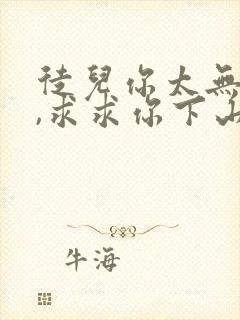 徒兒你太無
,求求你下山
牛海